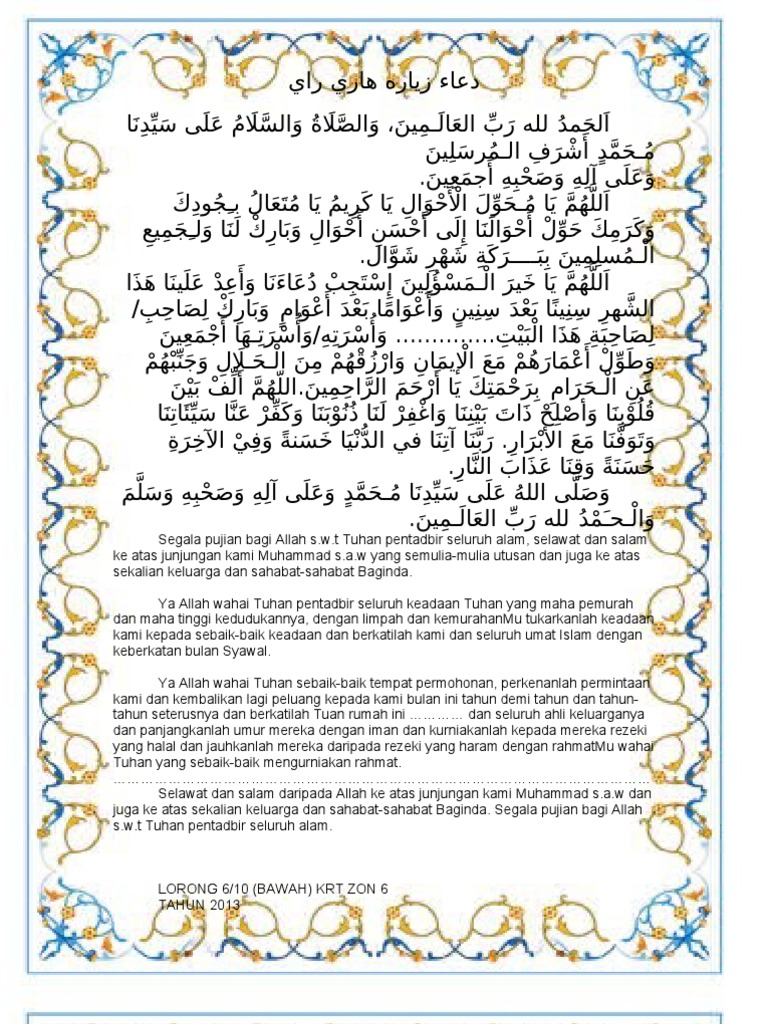 دعاء زياره هاري راي
اَلحَمدُ لله رَبِّ العَالَـمِينَ، وَالصَّلَاةُ وَالسَّلَامُ عَلَى سَيِّدِنَا
مُـحَمَّدٍ أَشْرَفِ الـمُرسَلِينَ
وَعَلَى آلِهِ وَصَحْبِهِ أَجمَعِينَ.
اَللَّهُمَّ يَا مُـحَوِّلَ الْأَحْوَالِ يَا كَرِيمُ يَا مُتَعَالُ بِـجُودِكَ
وَكَرَمِكَ حَوِّلْ أَحْوَالَنَا إِلَى أَحْسَنِ أَحْوَالِ وَبَارِكْ لَنَا وَلِـجَمِيعِ
الْـمُسلِمِينَ بِبَــــرَكَةِ شَهْرِ شَوَّالَ.
اَللَّهُمَّ يَا خَيرَ الْـمَسْؤُلِينَ إِسْتَجِبْ دُعَاءَنَا وَأَعِدْ عَلَينَا هَذَا
الشَّهرِ سِنِينًا بَعْدَ سِنِينٍ وَأَعْوَامًا بَعْدَ أَعْوَامٍ وَبَارِكْ لِصَاحِبِ/
لِصَاحِبَةِ هَذَا الْبَيْتِ.............. وَأُسْرَتِهِ/وَأُسْرَتِـهَا أَجْمَعِينَ
وَطَوِّلْ أَعْمَارَهُمْ مَعَ الْإيمَانِ وَارْزُقْهُمْ مِنَ الْـحَـلَالِ وَجَنِّبْهُمْ
عَنِ الْـحَرَامِ بِرَحْمَتِكَ يَا أَرْحَمَ الرَّاحِمِينَ.اللَّهُمَّ أَلِّفْ بَيْنَ
قُلُوْبِنَا وَأصْلِحْ ذَاتَ بَيْنِنَا وَاغْفِرْ لَنَا ذُنُوْبَنَا وَكَفِّرْ عَنَّا سَيِّئَاتِنَا
وَتَوَفَّنَا مَعَ الأَبْرَارِ. رَبَّنَا آتِنَا في الدُّنْيَا حَسَنةً وَفِيْ الآخِرَةِ
حَسَنَةً وَقِنَا عَذَابَ النَّارِ.
وَصَلَّى اللهُ عَلَى سَيِّدِنَا مُـحَمَّدٍ وَعَلَى آلِهِ وَصَحْبِهِ وَسَلَّمَ
وَالْـحـَمْدُ لله رَبِّ العَالَـمِينَ.
Segala pujian bagi Allah s.w.t Tuhan pentadbir seluruh alam, selawat dan salam
ke atas junjungan kami Muhammad s.a.w yang semulia-mulia utusan dan juga ke atas
sekalian keluarga dan sahabat-sahabat Baginda.
Ya Allah wahai Tuhan pentadbir seluruh keadaan Tuhan yang maha pemurah
dan maha tinggi kedudukannya, dengan limpah dan kemurahanMu tukarkanlah keadaan
kami kepada sebaik-baik keadaan dan berkatilah kami dan seluruh umat Islam dengan
keberkatan bulan Syawal.
Ya Allah wahai Tuhan sebaik-baik tempat permohonan, perkenanlah permintaan
kami dan kembalikan lagi peluang kepada kami bulan ini tahun demi tahun dan tahun-
tahun seterusnya dan berkatilah Tuan rumah ini ………… dan seluruh ahli keluarganya
dan panjangkanlah umur mereka dengan iman dan kurniakanlah kepada mereka rezeki
yang halal dan jauhkanlah mereka daripada rezeki yang haram dengan rahmatMu wahai
Tuhan yang sebaik-baik mengurniakan rahmat.
……………………………………………………………………………………………………
Selawat dan salam daripada Allah ke atas junjungan kami Muhammad s.a.w dan
juga ke atas sekalian keluarga dan sahabat-sahabat Baginda. Segala pujian bagi Allah
s.w.t Tuhan pentadbir seluruh alam.
LORONG 6/10 (BAWAH) KRT ZON 6
TAHUN 2013